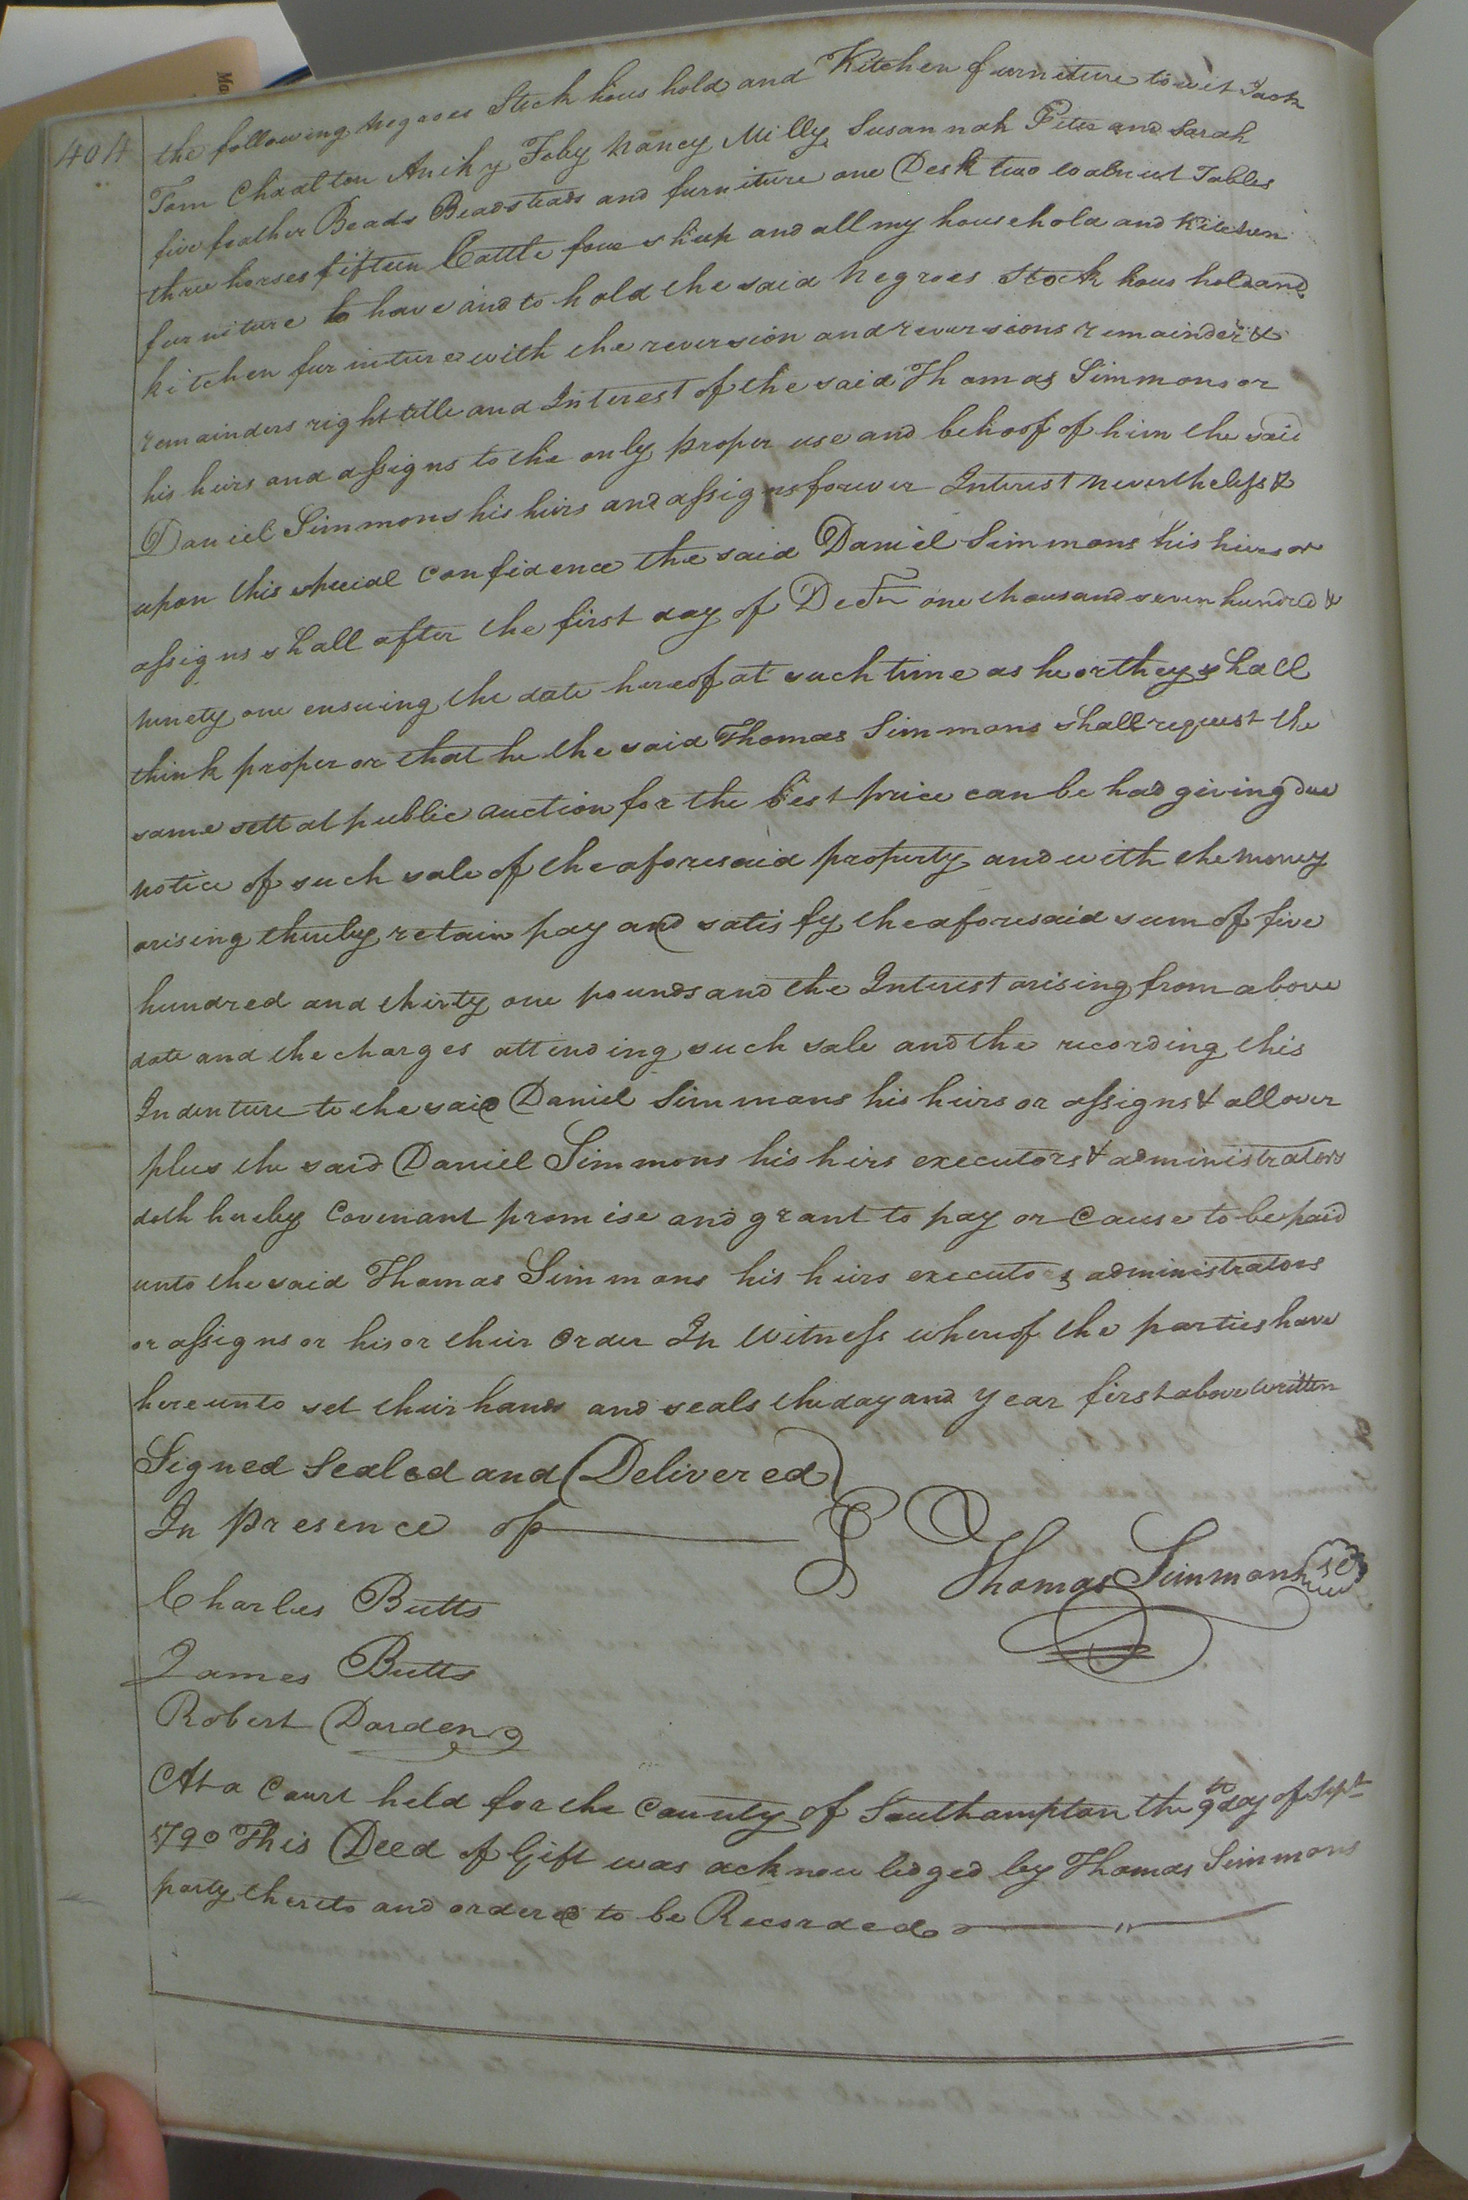 404
the following negroes Stock hous hold and Kitchen furniture to wit Jack
Tom Charlton Anky Toby Nancy Milly Susannah Peter and Sarah
five feather Beads Beadsteads and furniture one Desk two walnut Tables
three horses fifteen Cattle four sheep and all my household and Kitchen
furniture to have and to hold the said negroes Stock hous hold and
kitchen furniture with the reversion and reversions remainder &
remainders right title and Interest of the said Thomas Simmons or
his heirs and assigns to the only proper use and behoof of him the said
Daniel Simmons his heirs and assigns forever Interest nevertheless &
upon this special confidence the said Daniel Simmons his heirs or
assigns shall after the first day of Decr one thousand seven hundred &
ninety one ensuing the date hereof at such time as he or they shall
think proper or that he the said Thomas Simmons shall request the
same sett at public auction for the best price can be had giving due
notice of such sale of the aforesaid property and with the money
arising thereby retain pay and satisfy the aforesaid sum of five
hundred and thirty one pounds and the Interest arising from above
date and the charges attending such sale and the recording this
Indenture to the said Daniel Simmons his heirs or assigns & all over
plus the said Daniel Simmons his hirs executors & administrators
doth hereby Covenant promise and grant to pay or Cause to be paid
unto the said Thomas Simmons his heirs executors administrators
or assigns or his or their Order In Witness whereof the parties have
hereunto set their hands and seals the day and year first above written
Signed Sealed and Delivered
In presence of
Thomas Simmons
Charles Butts
James Butts
Robert Darden
At a Court held for the County of Southampton the 9th day of Sept
1790 This Deed of Gift was acknowledged by Thomas Simmons
party thereto and ordered to be Recorded